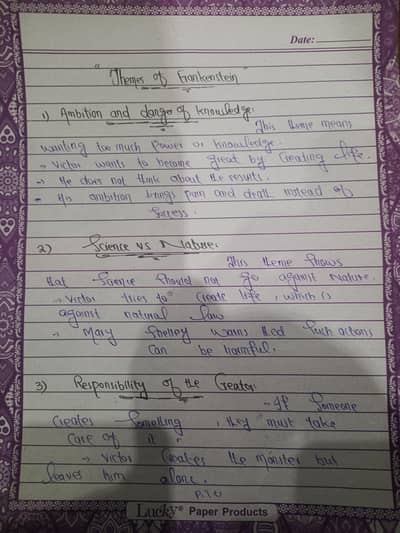 Date:
"Themes of Frankenstein"
1) Ambition and danger of knowledge:
This theme means
wanting too much power or knowledge.
→ Victor wants to become great by Creating life.
→ He does not think about the results.
- His ambition brings pain and death instead of
success.
2) Science vs Nature:
This theme shows
that Science should not go against Nature.
→ Victor tries to create life, which is
against natural law
→ Mary Shelley warns that such actions
can be harmful.
3) Responsibility of the Creator:
→ If Someone
Creates Something, they must take
care of it.
→ Victor Creates the monster but
leaves him alone.
P.T.O
Lucky® Paper Products